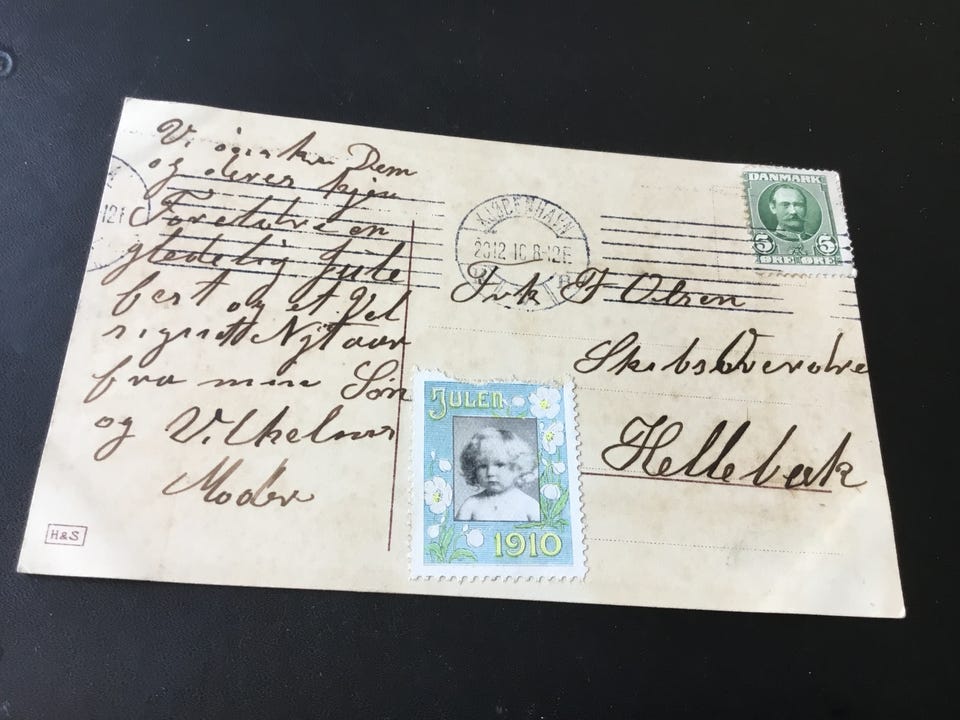 Vi ønske Dem
og deres kjere
Foreldre en
gledelig Jule
fest og et Vel
signett Nytaar
fra min Søn
og Vilhelms
Moder
H&S
121
KJØBENHAVN
23 12 10 8-12F
DANMARK
5 5
ØRE ØRE
Frk F Olsen
Skibs
Hellebek
JULEN
1910